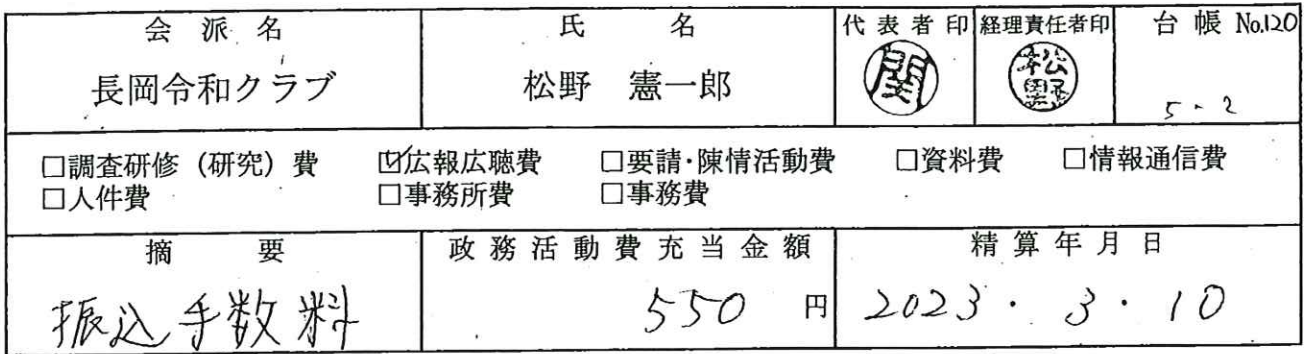 会派名 氏名 代表者印 経理責任者印 台帳 No.120
長岡令和クラブ 松野 憲一郎 関 松野 5-2
□調査研修（研究）費 ☑広報広聴費 □要請・陳情活動費 □資料費 □情報通信費
□人件費 □事務所費 □事務費
摘要 政務活動費充当金額 精算年月日
振込手数料 550 円 2023・3・10